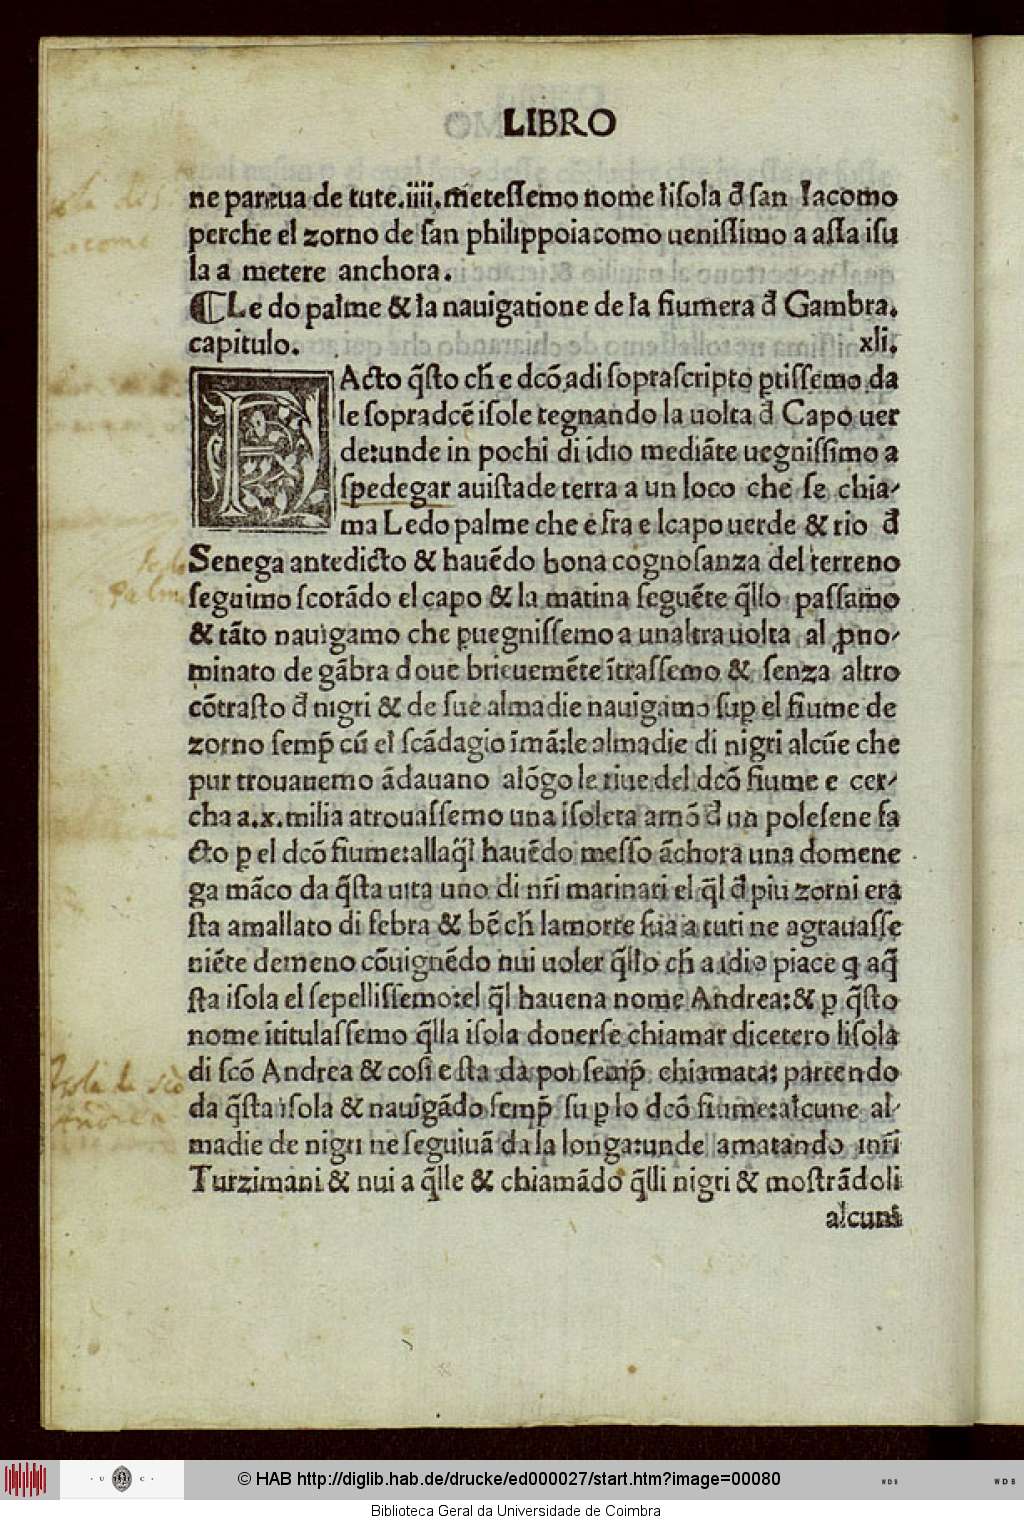 LIBRO
ne pareua de tute.iiii.m̄etessemo nome lisola đ san Iacomo
perche el zorno de san philippoiacomo uenissimo a q̄sta isu
la a metere anchora.
¶ Le do palme & la nauigatione de la fiumera đ Gambra.
capitulo. xli.
FActo q̄sto ch̄ e dcō adi soprascripto ꝑtissemo da
le sopradcē isole tegnando la uolta đ Capo uer
de:unde in pochi di idio mediāte uegnissimo a
spedegar auistade terra a un loco che se chia-
ma Ledo palme che e fra e lcapo uerde & rio đ
Senega antedicto & hauēdo bona cognosanza del terreno
seguimo scorādo el capo & la matina seguēte q̄llo passamo
& tāto nauigamo che ꝑuegnissemo a unaltra uolta al ꝓno-
minato de gābra doue brieuemēte ītrassemo & senza altro
cōtrasto đ nigri & de sue almadie nauigamo suꝑ el fiume de
zorno semp̄ cū el scādagio īmā:le almadie di nigri alcūe che
pur trouauemo ādauano alōgo le riue del dcō fiume e cer-
cha a.x.milia atrouassemo una isoleta amō đ un polesene fa
cto ꝑ el dcō fiume:allaq̄l hauēdo messo āchora una domene
ga māco da q̄sta uita uno di nr̄i marinari el q̄l đ piu zorni era
sta amallato di febra & bē ch̄ lamorte sua a tuti ne agrauasse
niēte demeno cōuignēdo nui uoler q̄llo ch̄ a idio piace q aq̄
sta isola el sepellissemo:el q̄l hauena nome Andrea:& ꝑ q̄sto
nome ītitulassemo q̄lla isola douerse chiamar dicetero lisola
di scō Andrea & cosi e sta da poi semp̄ chiamata: partendo
da q̄sta isola & nauigādo semp̄ su ꝑ lo dcō fiume:alcune al-
madie de nigri ne seguiuā da la longa:unde amatando inr̄i
Turzimani & nui a q̄lle & chiamādo q̄lli nigri & mostrādoli
alcuni
Isola de scō
Andrea
© HAB http://diglib.hab.de/drucke/ed000027/start.htm?image=00080
U C
WDS
WDB
Biblioteca Geral da Universidade de Coimbra